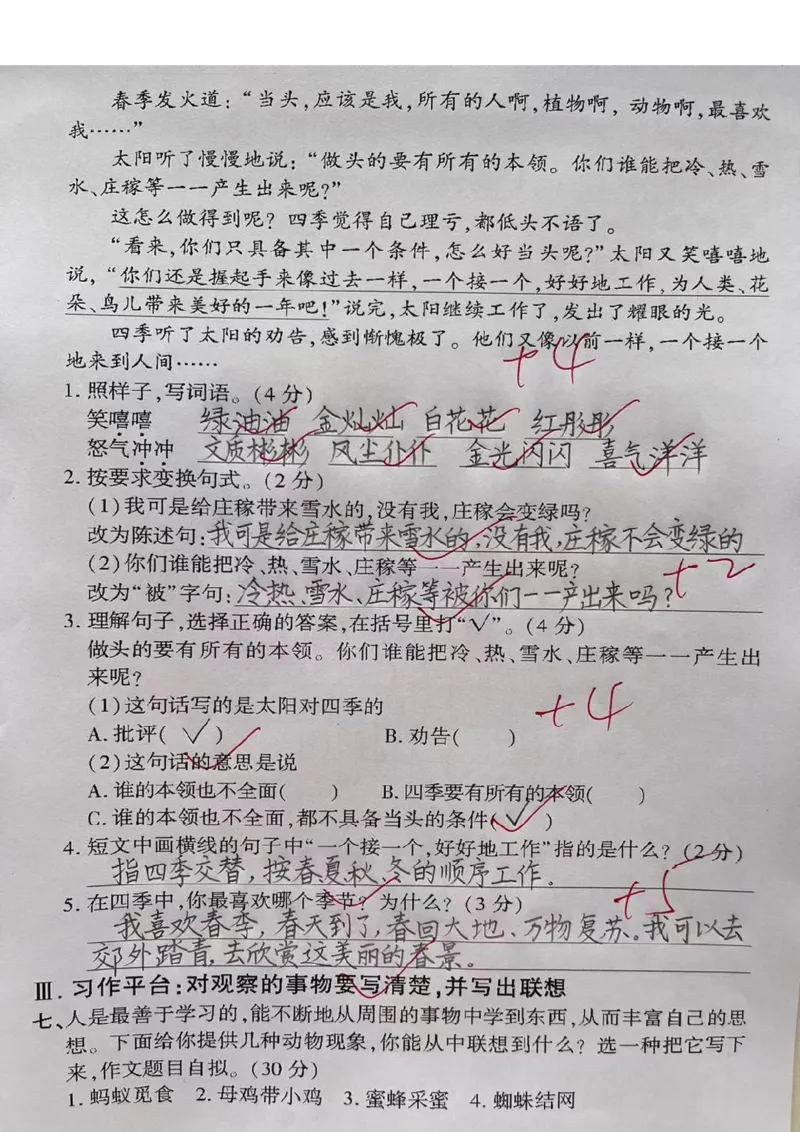 春季发火道：“当头，应该是我，所有的人啊，植物啊，动物啊，最喜欢
我……”
太阳听了慢慢地说：“做头的要有所有的本领。你们谁能把冷、热、雪
水、庄稼等一一产生出来呢？”
这怎么做得到呢？四季觉得自己理亏，都低头不语了。
“看来，你们只具备其中一个条件，怎么好当头呢？”太阳又笑嘻嘻地
说，“你们还是握起手来像过去一样，一个接一个，好好地工作，为人类、花
朵、鸟儿带来美好的一年吧！”说完，太阳继续工作了，发出了耀眼的光。
四季听了太阳的劝告，感到惭愧极了。他们又像以前一样，一个接一个
地来到人间……
+4
1. 照样子，写词语。（4分）
笑嘻嘻 绿油油 金灿灿 白花花 红彤彤
怒气冲冲 文质彬彬 风尘仆仆 金光闪闪 喜气洋洋
2. 按要求变换句式。（2分）
（1）我可是给庄稼带来雪水的，没有我，庄稼会变绿吗？
改为陈述句：我可是给庄稼带来雪水的，没有我，庄稼不会变绿的
（2）你们谁能把冷、热、雪水、庄稼等一一产生出来呢？
+2
改为“被”字句：冷热、雪水、庄稼等被你们一一产出来吗？
3. 理解句子，选择正确的答案，在括号里打“√”。（4分）
做头的要有所有的本领。你们谁能把冷、热、雪水、庄稼等一一产生出
来呢？
（1）这句话写的是太阳对四季的
+4
A. 批评（√） B. 劝告（ ）
（2）这句话的意思是说
A. 谁的本领也不全面（ ） B. 四季要有所有的本领（ ）
C. 谁的本领也不全面，都不具备当头的条件（√）
4. 短文中画横线的句子中“一个接一个，好好地工作”指的是什么？（2分）
指四季交替，按春夏秋、冬的顺序工作。
5. 在四季中，你最喜欢哪个季节？为什么？（3分）
+5
我喜欢春季，春天到了，春回大地、万物复苏。我可以去
郊外踏青，去欣赏这美丽的春景。
Ⅲ. 习作平台：对观察的事物要写清楚，并写出联想
七、人是最善于学习的，能不断地从周围的事物中学到东西，从而丰富自己的思
想。下面给你提供几种动物现象，你能从中联想到什么？选一种把它写下
来，作文题目自拟。（30分）
1. 蚂蚁觅食 2. 母鸡带小鸡 3. 蜜蜂采蜜 4. 蜘蛛结网